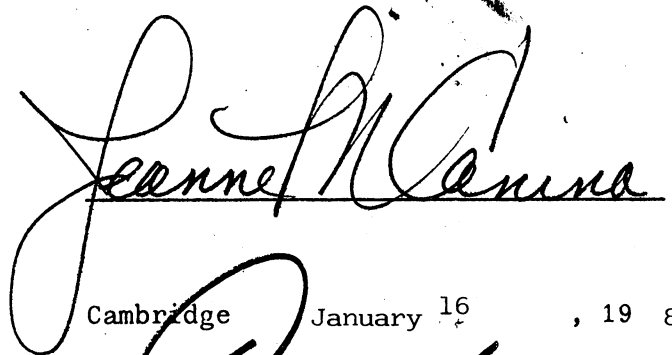 Jeanne M Canina
Cambridge January 16 , 19 8